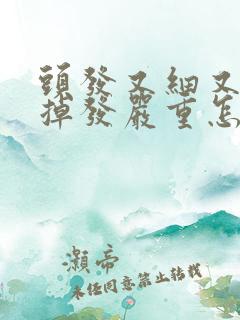 頭發又細又
掉發嚴重怎
灝帝
未經同意禁止轉載